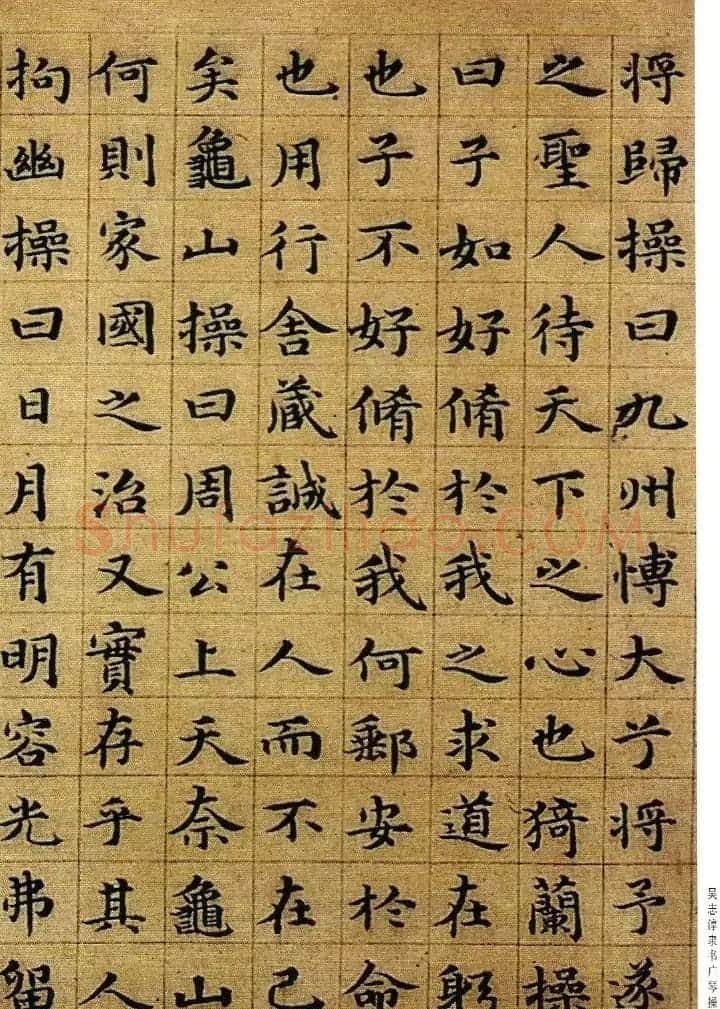 將歸操曰九州博大兮將予遂
之聖人待天下之心也猗蘭操
曰子如好脩於我之求道在躬
也子不好脩於我何郵安於命
也用行舍藏誠在人而不在己
矣龜山操曰周公上天奈龜山
何則家國之治又實存乎其人
拘幽操曰日月有明容光弗留
shufaziliao.COM
吴志淳隶书广琴操